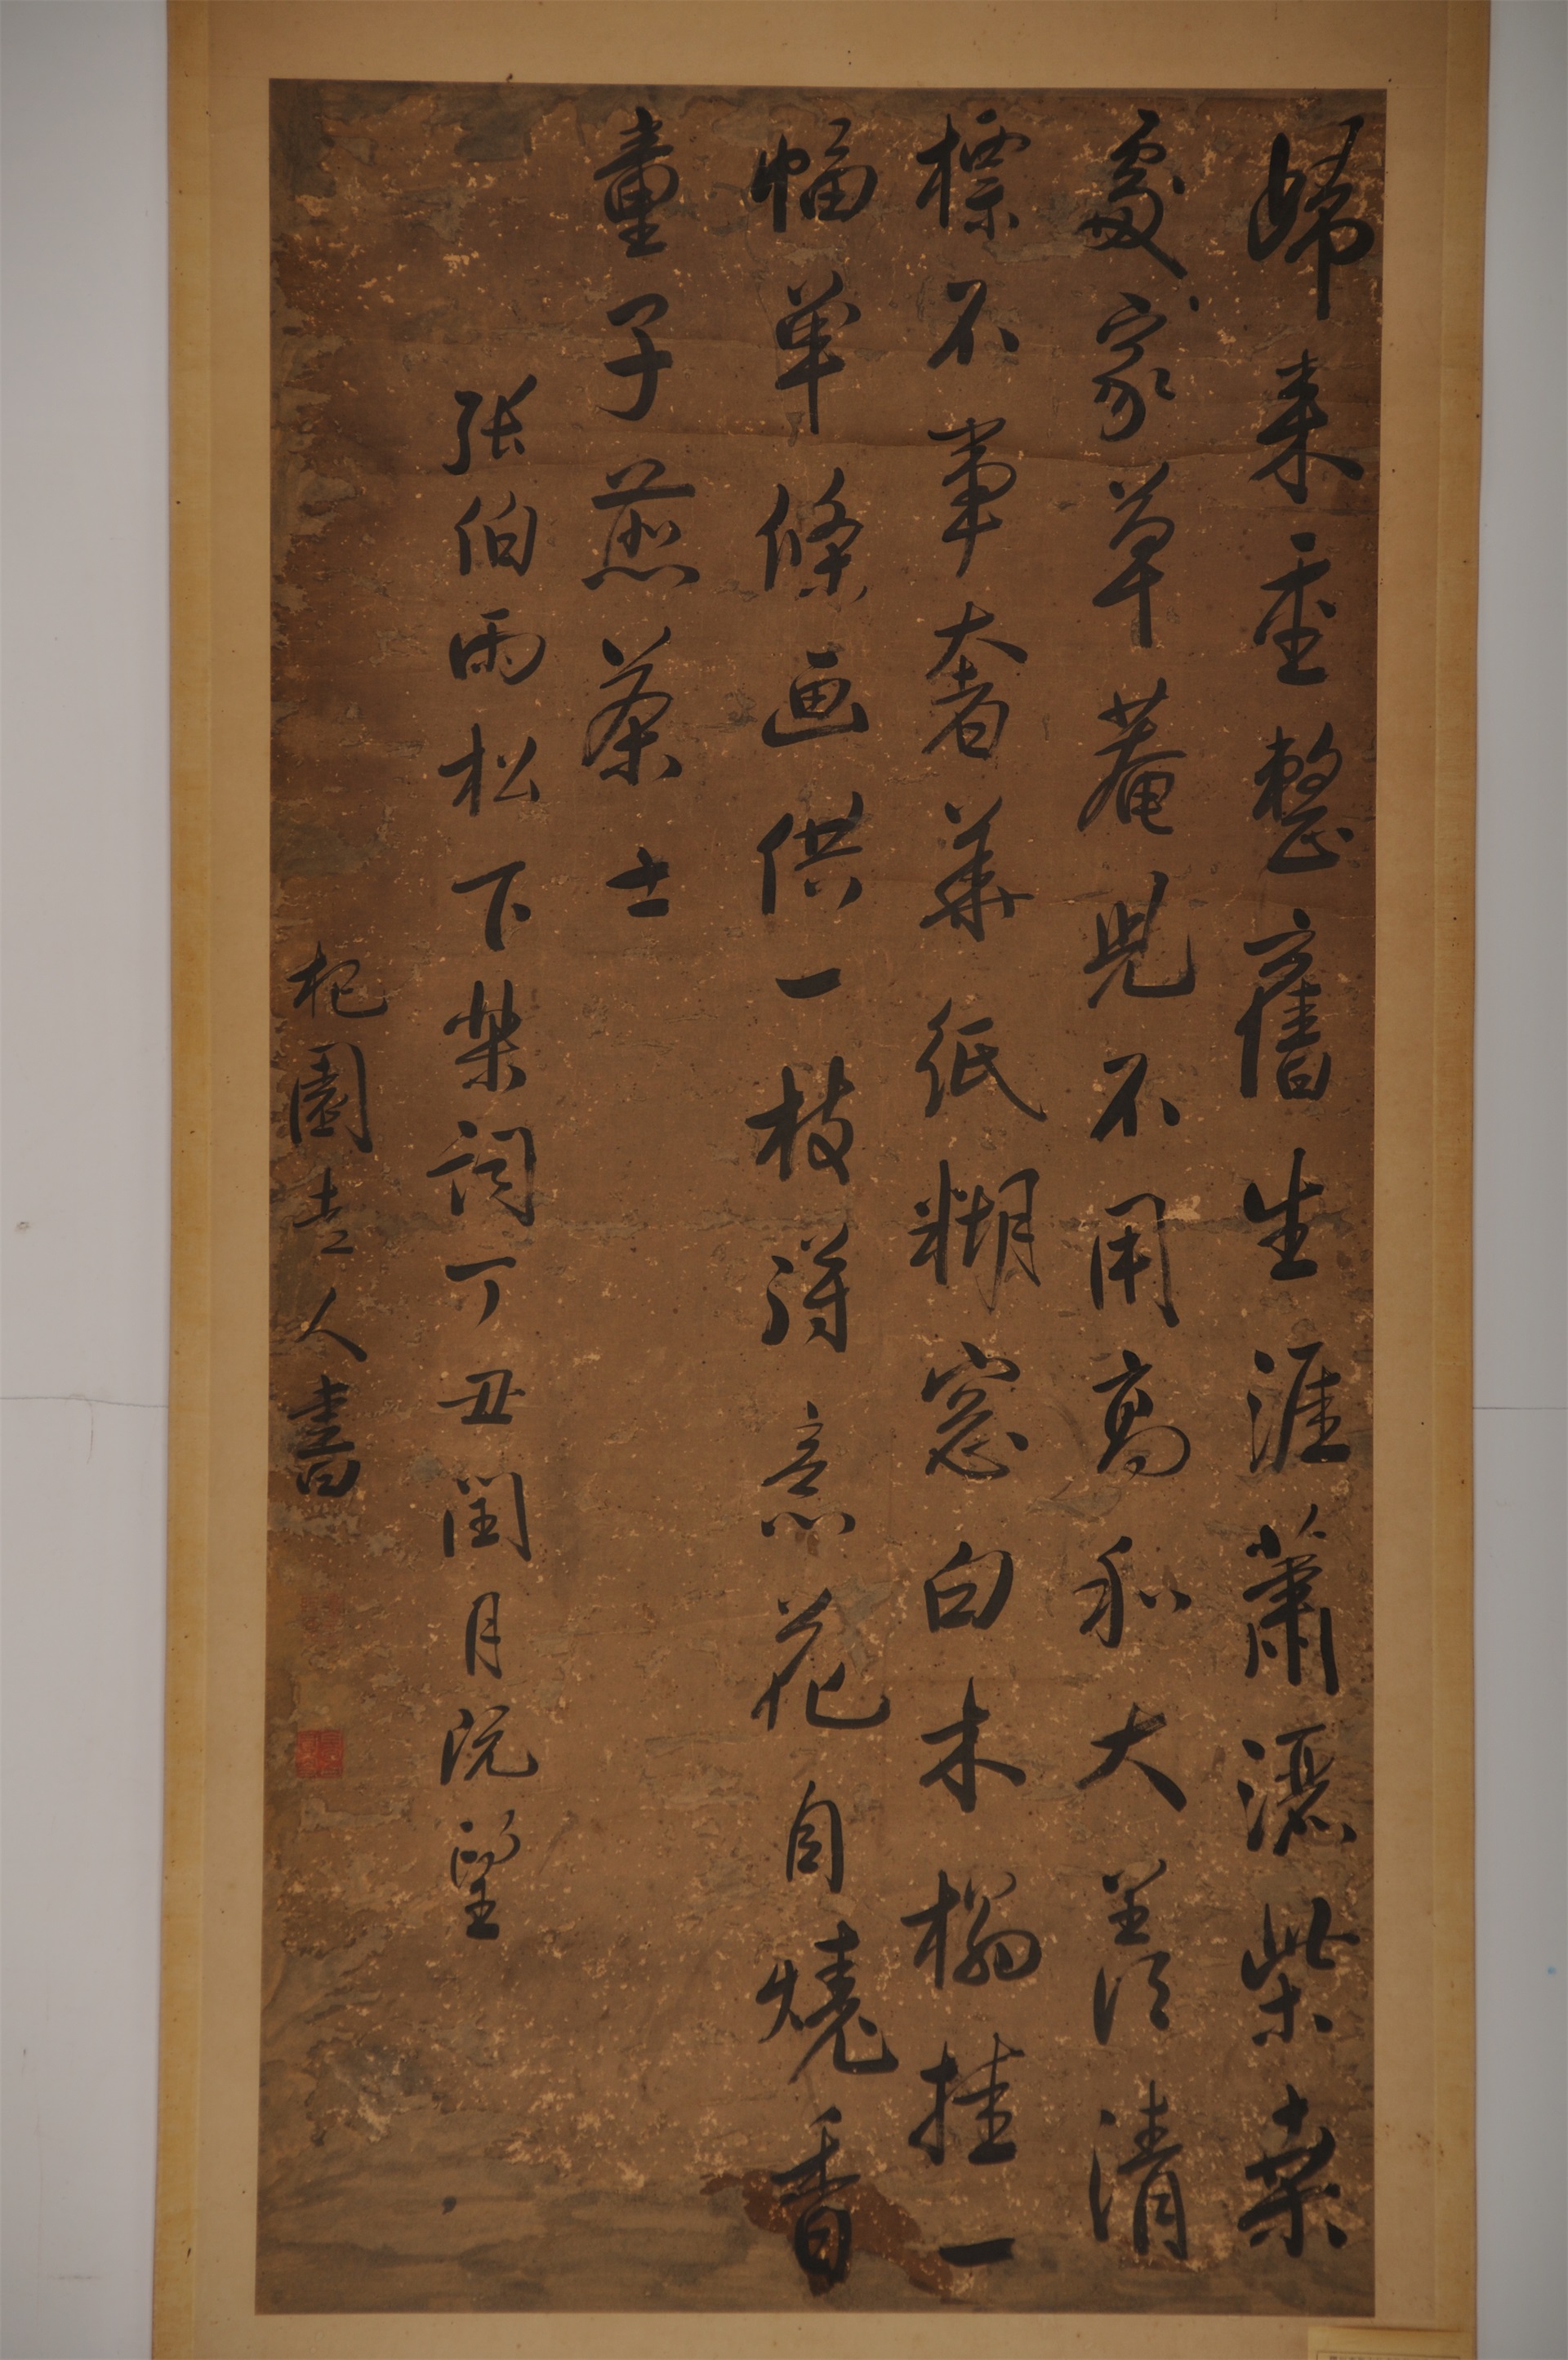 歸来重整舊生涯蕭灑柴桑
處家草菴兒不用高和大須清
標不事奢華紙糊窓白木榻挂一
幅單條画供一枝得意花自燒香
童子煎茶 士
張伯雨松下樂詞丁丑閏月既望
杞園老人書